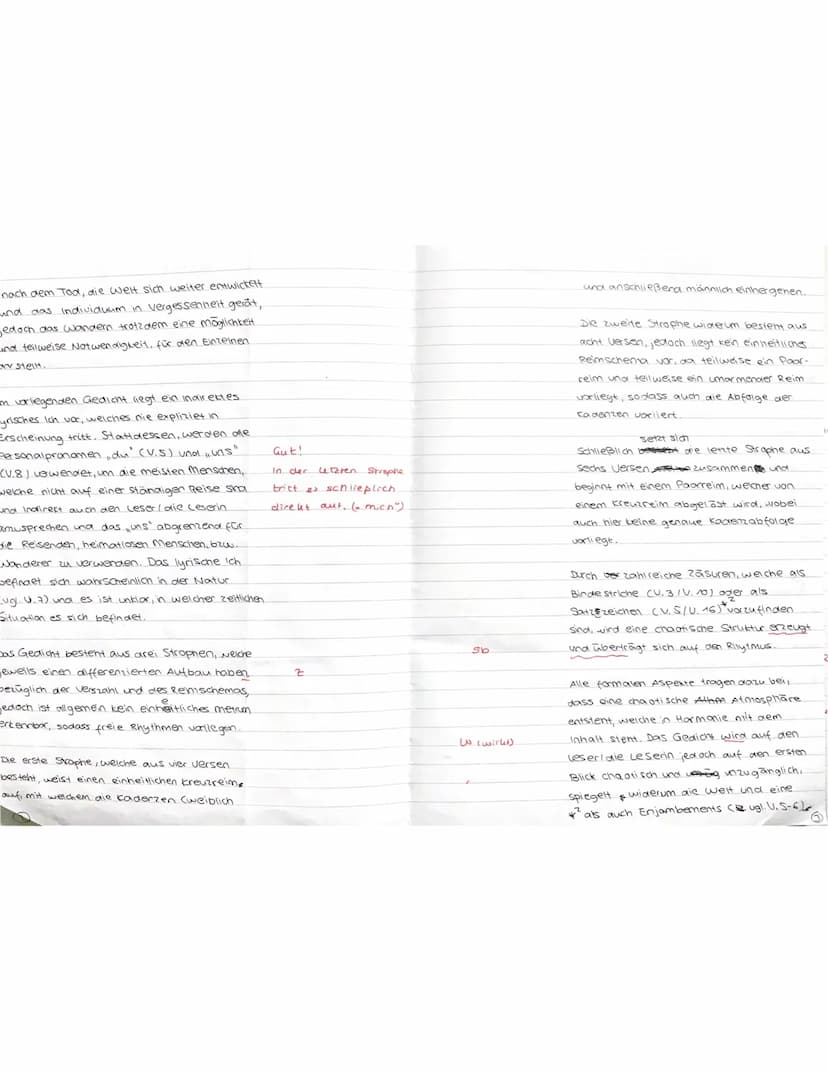 nach dem Tod, die Welt sich weiter entwickelt
und das Individuum in Vergessenheit gerät,
jedoch das Wandern trotzdem eine Möglichkeit
und teilweise Notwendigkeit, für den Einzelnen
darstellt.
m vorliegenden Gedicht liegt ein indirektes
lyrisches Ich vor, welches nie expliziet in
Erscheinung tritt. Stattdessen, werden die
Personalpronomen „du" (V.5) und „uns"
(V.8) verwendet, um die meisten Menschen,
welche nicht auf einer ständigen Reise sind
und indirekt auch den Leser/die Leserin
anzusprechen und das „uns" abgrenzend für
die Reisenden, heimatlosen Menschen, bzw.
Wanderer zu verwenden. Das lyrische Ich
befindet sich wahrscheinlich in der Natur
(vgl. V.7) und es ist unklar, in welcher zeitlichen
Situation es sich befindet.
Das Gedicht besteht aus drei Strophen, welche
jeweils einen differenzierten Aufbau haben
bezüglich der Verszahl und des Reimschemas,
jedoch ist allgemein kein einheitliches Metrum
erkennbar, sodass freie Rhythmen vorliegen.
Die erste Strophe, welche aus vier Versen
besteht, weist einen einheitlichen Kreuzreim
auf, mit welchem die Kadenzen (weiblich
Gut!
In der letzten Strophe
tritt es schließlich
direkt auf. („mich")
Z
Sb
W (wirkt)
und anschließend männlich einhergehen.
Die zweite Strophe widerum besteht aus
acht Versen, jedoch liegt kein einheitliches
Reimschema vor, da teilweise ein Paar-
reim und teilweise ein umarmender Reim
vorliegt, sodass auch die Abfolge der
Kadenzen variiert.
setzt sich
Schließlich die letzte Strophe aus
sechs Versen zusammen und
beginnt mit einem Paarreim, welcher von
einem Kreuzreim abgelöst wird, wobei
auch hier keine genaue Kadenzabfolge
vorliegt.
Durch zahlreiche Zäsuren, welche als
Bindestriche (V.3/V.10) oder als
Satzzeichen (V.5/V.16) *2 vorzufinden
sind, wird eine chaotische Struktur erzeugt
und überträgt sich auf den Rhytmus.
Alle formalen Aspekte tragen dazu bei,
dass eine chaotische Atmosphäre
entsteht, welche in Harmonie mit dem
Inhalt steht. Das Gedicht wird auf den
Leser/die Leserin jedoch auf den ersten
Blick chaotisch und unzugänglich,
spiegelt widerum die Welt und eine
*2 als auch Enjambements (vgl. V.5-6)